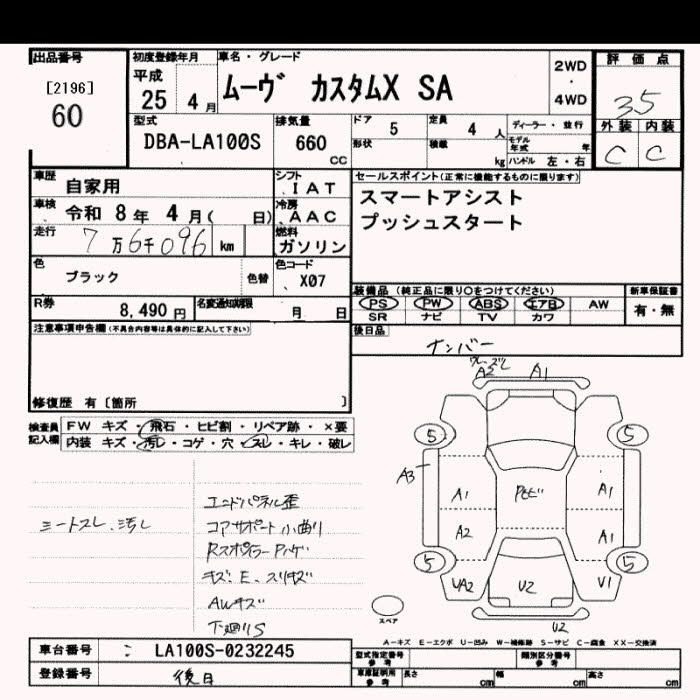 出品番号
[2196]
60
初度登録年月
平成
25 4月
車名・グレード
ムーヴ カスタムX SA
2WD
・
4WD
評価点
3.5
外装 内装
C C
型式
DBA-LA100S
排気量
660
CC
ドア 5
定員 4 人
形状
積載 kg
ディーラー・並行
モデル年式 年
ハンドル 左・右
車歴 自家用
車検 令和 8年 4月( 日)
走行 7万6千096 km
色 ブラック
色替
シフト
IAT
冷房
AAC
燃料
ガソリン
色コード
X07
セールスポイント(正常に機能するものに限ります)
スマートアシスト
プッシュスタート
R券 8,490円
名変通知期限 月 日
装備品 (純正品に限り○をつけてください)
PS PW ABS エアB AW
SR ナビ TV カワ
新車保証書
有・無
後日品
ナンバー
注意事項申告欄(不具合内容等は具体的に記入して下さい)
修復歴 有〔箇所 〕
検査員記入欄
FW キズ・飛石・ヒビ割・リペア跡・×要
内装 キズ・汚れ・コゲ・穴・スレ・キレ・破レ
シートスレ、汚レ
エンドパネル歪
コアサポート小曲り
Rスポイラー Pハゲ
キズ、E、スリキズ
AWキズ
下廻りS
A2 A1
5 5
A3
A1 A1
A2 A1
5 5
UA2 U2 V1
U2
スペア
A-キズ E-エクボ U-凹み W-補修跡 S-サビ C-腐食 XX-交換済
車台番号 LA100S-0232245
登録番号 後日
型式指定番号
参考
類別区分番号
参考
車庫証明用
参考
長さ cm
幅 cm
高さ cm